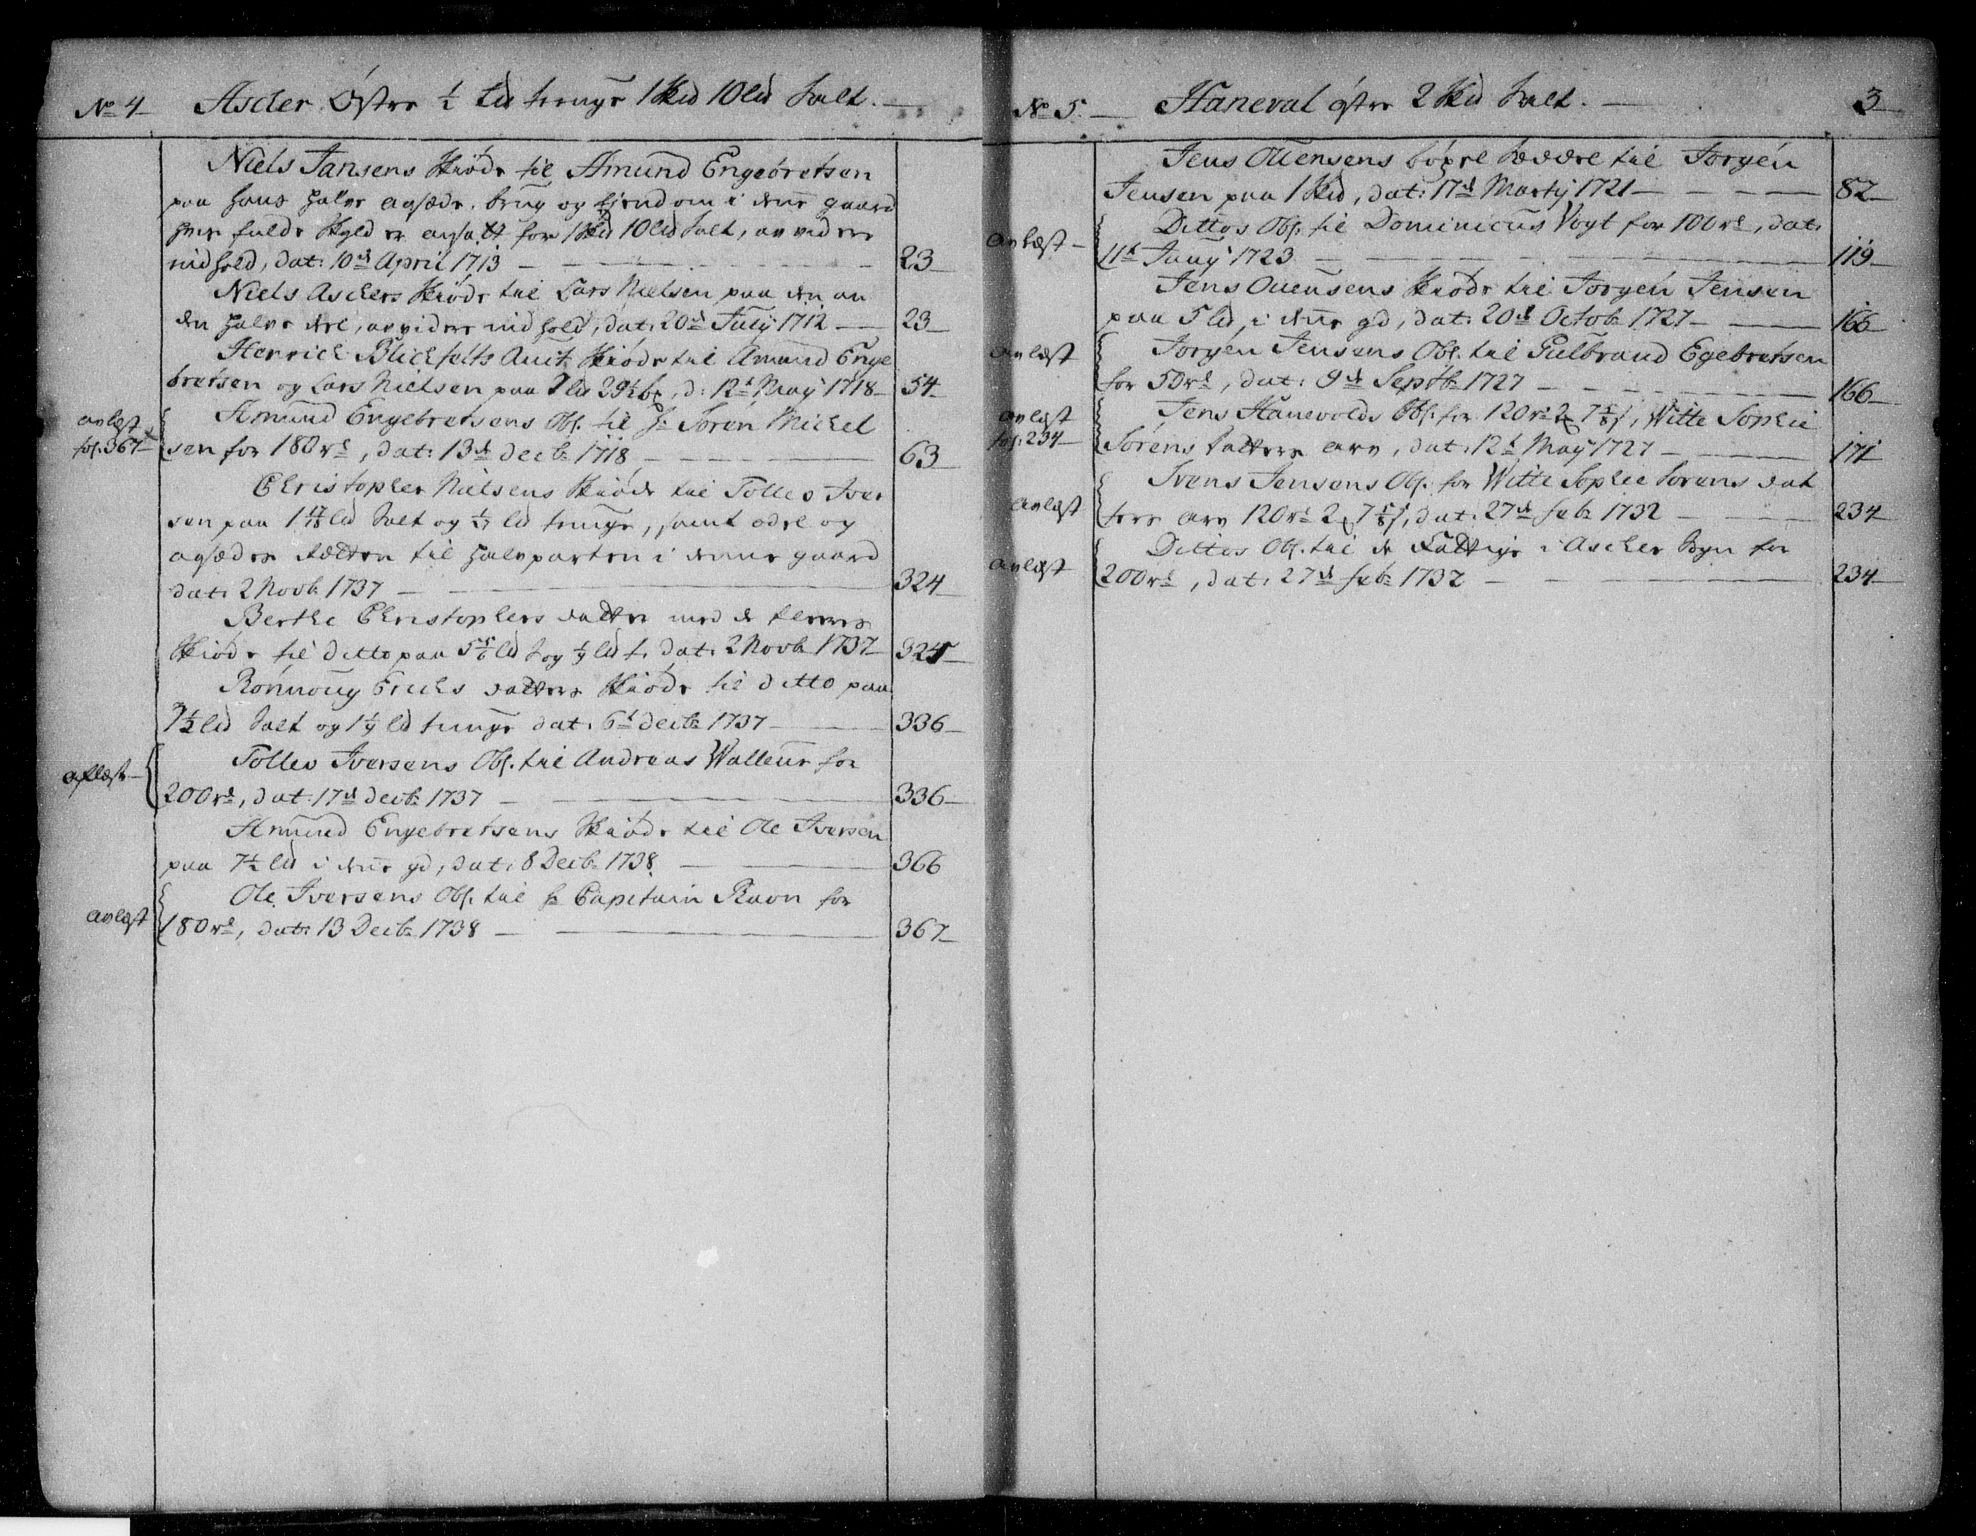 No 4 Ascher Østre ½ Lid tunge 1 Skid 10 lid Salt.
Niels Jansens Skiøde til Amund Engebretsen
paa hans halve aasæde, brug og Eiendom i denne gaard
hvis fulde Skyld er ansatt for 1 Skid 10 lid Salt, av videre
indhold, dat: 10de April 1713 23
Niels Aschers Skiøde til Lars Nielsen paa den an
den halve deel, av videre indhold, dat: 20de July 1712 23
Henrich Blichfelts Auct. Skiøde til Amund Enge
bretsen og Lars Nielsen paa lid d: 12t May 1718 54
avlæst
fol. 367
Amund Engebretsens Obl. til Hr Søren Michel
sen for 180 rd, dat: 13de Decbr 1718 63
Christopher Nielsens Skiøde til Tollev Iver
sen paa 1 lid Salt og lid tunge, samt odel og
aasædes rætten til halvparten i denne gaard
dat: 2 Novbr 1737 324
Berthe Christophers datter med de fleeres
Skiøde til ditto paa 5 lid S og lid t. dat: 2 Novbr 1737 325
Rønnoug Erichs datters Skiøde til ditto paa
7½ lid Salt og 1 lid tunge dat: 6t Decbr 1737 336
aflæst
Tollev Iversens Obl. til Andreas Wallenr for
200 rd, dat: 17de Decbr 1737 336
Amund Engebretsens Skiøde til Ole Iversen
paa 7½ lid i denne gd, dat: 8 Decbr 1738 366
avlæst
Ole Iversens Obl. til Hr Capitain Ravn for
180 rd, dat: 13 Decbr 1738 367
No 5. Haneval østre 2 Skid Salt. 3
Jens Ouensens bøxel Seddel til Jørgen
Jensen paa 1 Skid, dat: 17de Marty 1721 82
avlæst
Dittos Obl. til Dominicus Vogt for 100 rd, dat:
11t Juny 1723 119
Jens Ouensens Skiøde til Jørgen Jensen
paa 5 lid i denne gd, dat: 20de Octob 1727 166
avlæst
Jørgen Jensens Obl. til Gulbrand Egebretsen
for 50 rd, dat: 9de Septbr 1727 166
avlæst
fol: 234
Jens Hanevolds Obl. for 120 rd 2 7 s, Witte Sophie
Sørens datters arv, dat: 12t May 1727 171
avlæst
Ivens Jensens Obl. for Witte Sophie Sørens dat
ters arv 120 rd 2 7 s, dat: 27de Febr 1732 234
avlæst
Dittos Obl. til de Fattige i Ascher Byn for
200 rd, dat: 27de Febr 1732 234